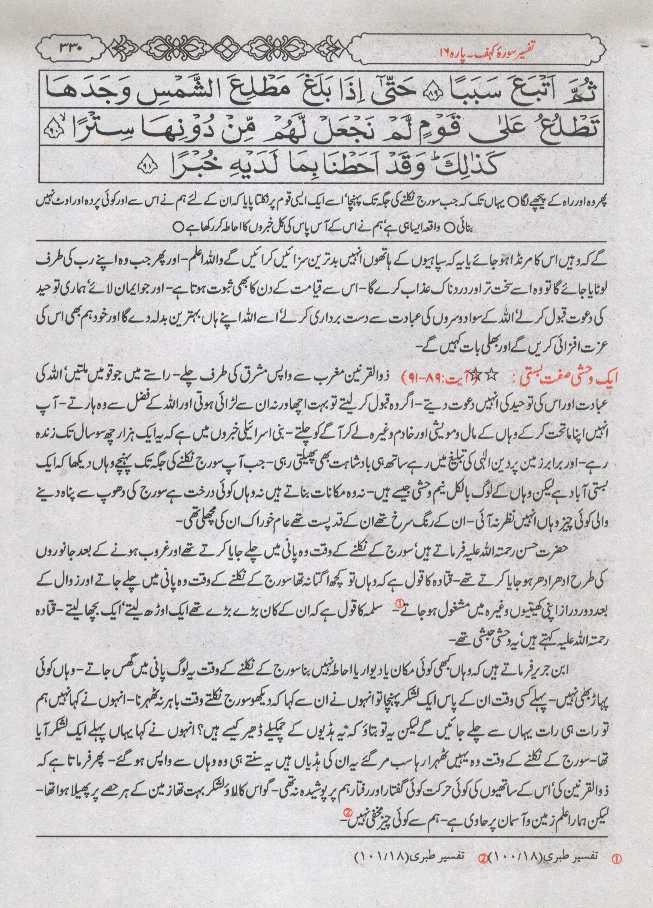 تفسیر سورۂ کہف۔ پارہ ۱۶
۳۳۰
ثُمَّ اَتْبَعَ سَبَبًا ﴿۸۹﴾ حَتّٰۤی اِذَا بَلَغَ مَطْلِعَ الشَّمْسِ وَجَدَهَا
تَطْلُعُ عَلٰی قَوْمٍ لَّمْ نَجْعَلْ لَّهُمْ مِّنْ دُوْنِهَا سِتْرًا ﴿۹۰﴾ۙ
كَذٰلِكَ ؕ وَقَدْ اَحَطْنَا بِمَا لَدَیْهِ خُبْرًا ﴿۹۱﴾
پھر وہ اور راہ کے پیچھے لگا ○ یہاں تک کہ جب سورج نکلنے کی جگہ تک پہنچا' اسے ایک ایسی قوم پر نکلتا پایا کہ ان کے لئے ہم نے اس سے اور کوئی پردہ اور اوٹ نہیں
بنائی ○ واقعہ ایسا ہی ہے' ہم نے اس کے آس پاس کی کل خبروں کا احاطہ کر رکھا ہے ○
گے کہ وہیں اس کا مرنڈا ہو جائے یا یہ کہ سپاہیوں کے ہاتھوں انہیں بدترین سزائیں کرائیں گے واللہ اعلم- اور پھر جب وہ اپنے رب کی طرف
لوٹایا جائے گا تو وہ اسے سخت تر اور دردناک عذاب کرے گا- اس سے قیامت کے دن کا بھی ثبوت ہوتا ہے- اور جو ایمان لائے' ہماری توحید
کی دعوت قبول کرلے' اللہ کے سوا دوسروں کی عبادت سے دست برداری کرلے' اسے اللہ اپنے ہاں بہترین بدلہ دے گا اور خود ہم بھی اس کی
عزت افزائی کریں گے اور بھلی بات کہیں گے-
ایک وحشی صفت بستی: ☆☆ (آیت: ۸۹-۹۱) ذوالقرنین مغرب سے واپس مشرق کی طرف چلے- راستے میں جو قومیں ملتیں' اللہ کی
عبادت اور اس کی توحید کی انہیں دعوت دیتے- اگر وہ قبول کر لیتے تو بہت اچھا ور نہ ان سے لڑائی ہوتی اور اللہ کے فضل سے وہ ہارتے- آپ
انہیں اپنا ماتحت کر کے وہاں کے مال و مویشی اور خادم وغیرہ لے کر آگے کو چلتے- بنی اسرائیلی خبروں میں ہے کہ یہ ایک ہزار چھ سو سال تک زندہ
رہے- اور برابر زمین پر دین الٰہی کی تبلیغ میں رہے ساتھ ہی بادشاہت بھی پھیلتی رہی- جب آپ سورج نکلنے کی جگہ تک پہنچے وہاں دیکھا کہ ایک
بستی آباد ہے لیکن وہاں کے لوگ بالکل نیم وحشی جیسے ہیں- نہ وہ مکانات بناتے ہیں نہ وہاں کوئی درخت ہے سورج کی دھوپ سے پناہ دینے
والی کوئی چیز وہاں انہیں نظر نہ آئی- ان کے رنگ سرخ تھے ان کے قد پست تھے عام خوراک ان کی مچھلی تھی-
حضرت حسن رحمتہ اللہ علیہ فرماتے ہیں' سورج کے نکلنے کے وقت وہ پانی میں چلے جایا کرتے تھے اور غروب ہونے کے بعد جانوروں
کی طرح ادھر ادھر ہو جایا کرتے تھے- قتادہ کا قول ہے کہ وہاں تو کچھ اگتا نہ تھا سورج کے نکلنے کے وقت وہ پانی میں چلے جاتے اور زوال کے
بعد دور دراز اپنی کھیتیوں وغیرہ میں مشغول ہو جاتے① سلمہ کا قول ہے کہ ان کے کان بڑے بڑے تھے ایک اوڑھ لیتے' ایک بچھا لیتے- قتادہ
رحمتہ اللہ علیہ کہتے ہیں' یہ وحشی حبشی تھے-
ابن جریر فرماتے ہیں کہ وہاں کبھی کوئی مکان یا دیوار یا احاطہ نہیں بنا سورج کے نکلنے کے وقت یہ لوگ پانی میں گھس جاتے- وہاں کوئی
پہاڑ بھی نہیں- پہلے کسی وقت ان کے پاس ایک لشکر پہنچا تو انہوں نے ان سے کہا کہ دیکھو سورج نکلتے وقت باہر نہ ٹھہرنا- انہوں نے کہا نہیں ہم
تو رات ہی رات یہاں سے چلے جائیں گے لیکن یہ تو بتاؤ کہ یہ ہڈیوں کے چمکیلے ڈھیر کیسے ہیں؟ انہوں نے کہا یہاں پہلے ایک لشکر آیا
تھا- سورج کے نکلنے کے وقت وہ یہیں ٹھہرا رہا سب مر گئے یہ ان کی ہڈیاں ہیں یہ سنتے ہی وہ وہاں سے واپس ہو گئے- پھر فرماتا ہے کہ
ذوالقرنین کی' اس کے ساتھیوں کی کوئی حرکت کوئی گفتار اور رفتار ہم پر پوشیدہ نہ تھی- گو اس کا لاؤ لشکر بہت تھا زمین کے ہر حصے پر پھیلا ہوا تھا-
لیکن ہمارا علم زمین و آسمان پر حاوی ہے- ہم سے کوئی چیز مخفی نہیں-②
① تفسیر طبری (۱۰۰/۱۸) ② تفسیر طبری (۱۰۱/۱۸)